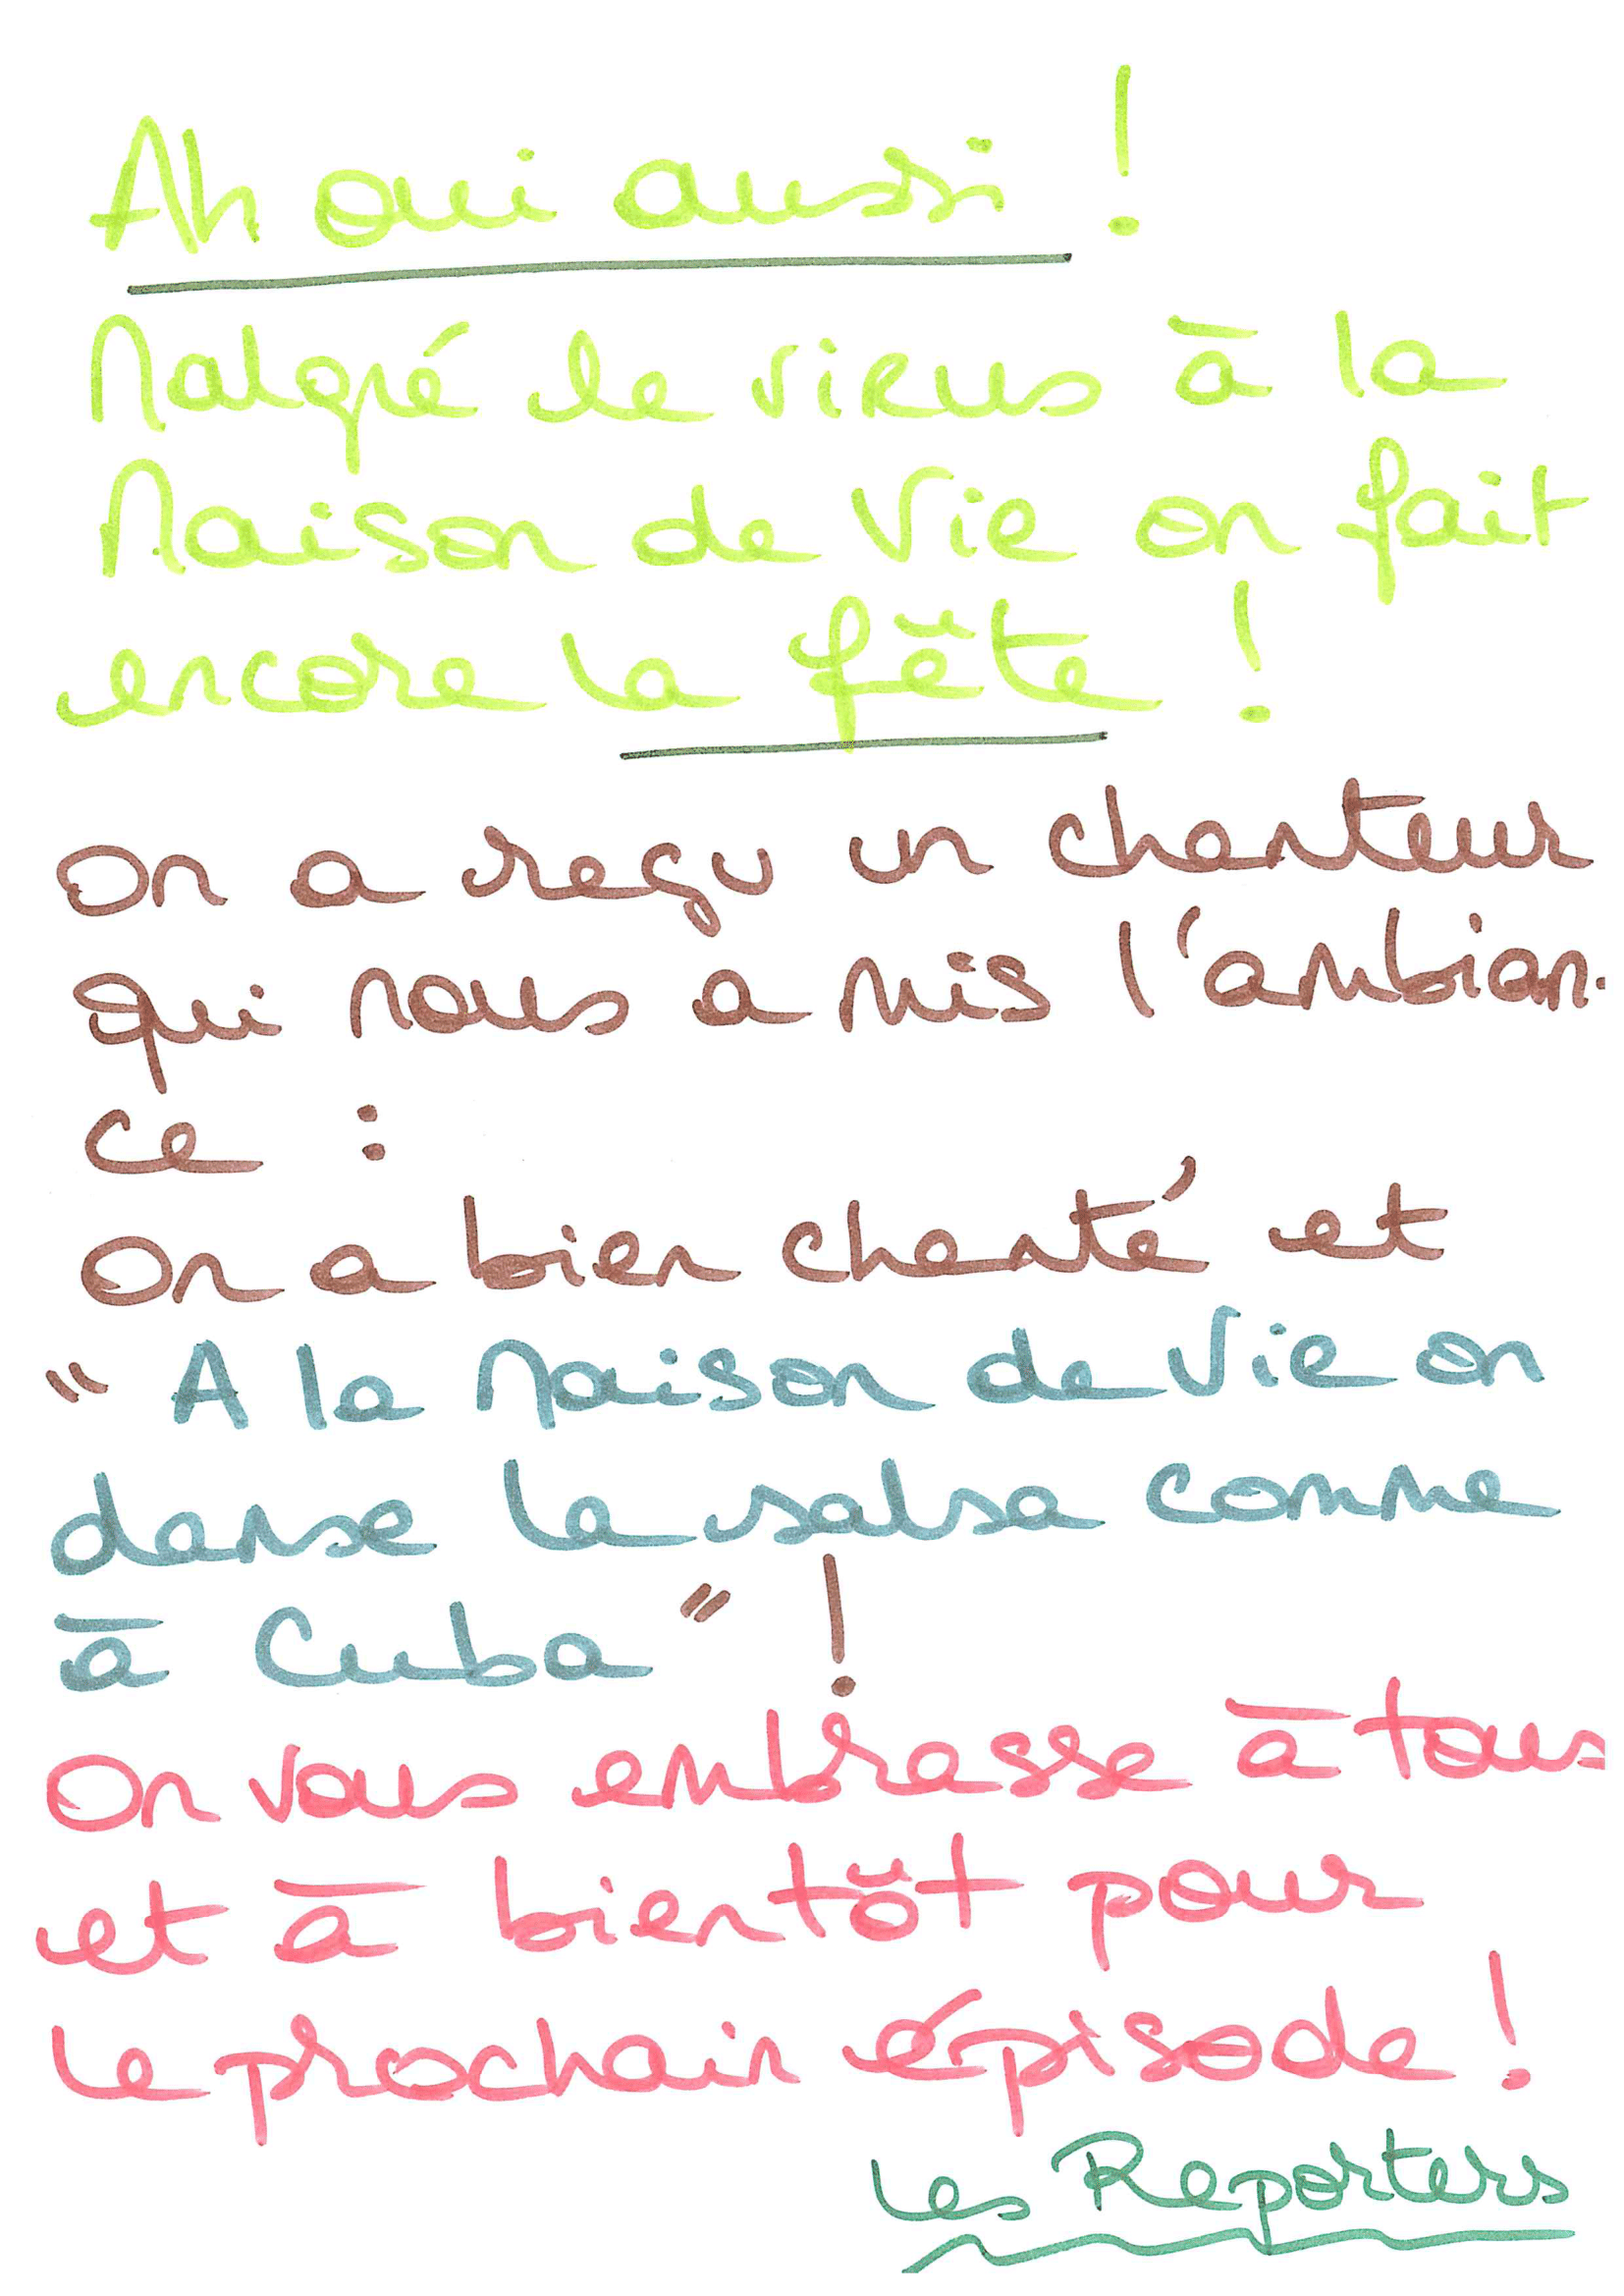 Ah oui aussi !
Malgré le virus à la
Maison de Vie on fait
encore la fête !
On a reçu un chanteur
qui nous a mis l'ambian-
ce :
On a bien chanté et
" A la Maison de Vie on
danse la salsa comme
à Cuba " !
On vous embrasse à tous
et à bientôt pour
le prochain épisode !
Les Reporters